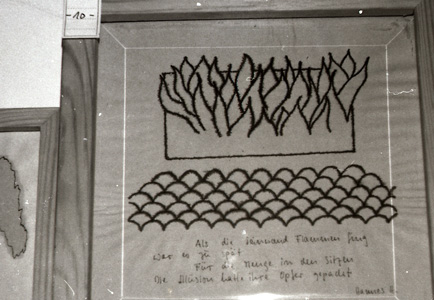 -10-
Als die Leinwand Flammen fing
War es zu spät
Für die Menge in den Sitzen
Die Illusion hatte ihre Opfer gepackt
Hannes